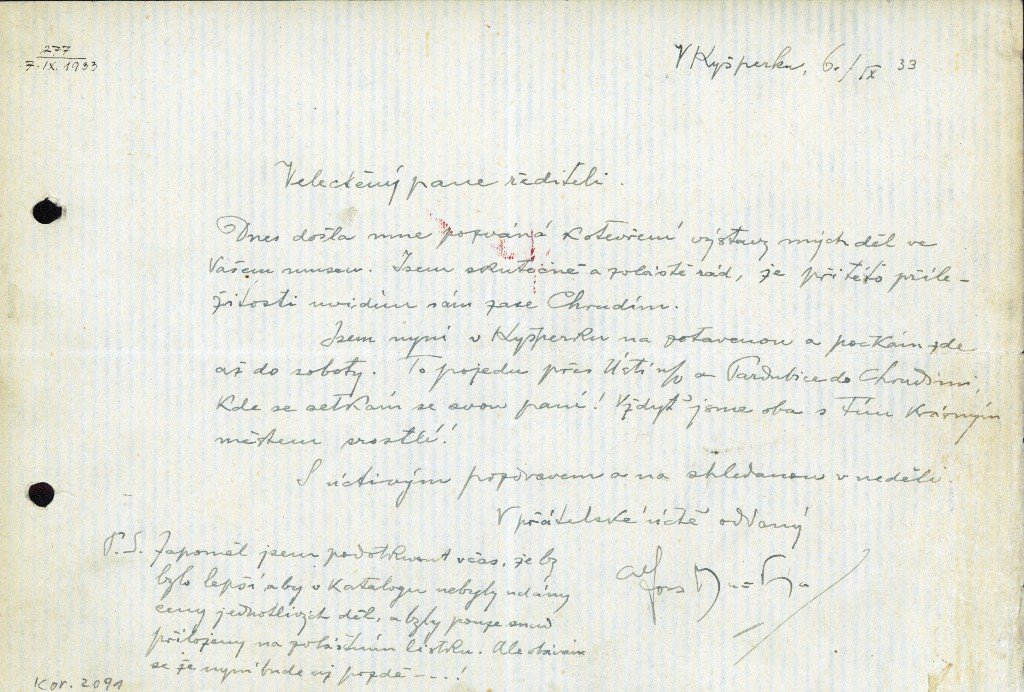 277
7.IX.1933
V Kyšperku, 6./IX 33
Velectěný pane řediteli.
Dnes došla mne pozvání k otevření výstavy mých děl ve
Vašem museu. Jsem skutečně a zvláště rád, že při této příle-
žitosti uvidím sám zase Chrudim.
Jsem nyní v Kyšperku na zotavenou a počkám zde
až do soboty. To pojedu přes Ústí n/o a Pardubice do Chrudimi,
kde se setkám se svou paní! Vždyť jsme oba s Tím krásným
městem srostlí!
S úctivým pozdravem a na shledanou v neděli.
V přátelské úctě oddaný
P.S. Zapoměl jsem podotknout včas, že by
bylo lepší aby v katalogu nebyly udány
ceny jednotlivých děl, a byly pouze
přiloženy na zvláštním lístku. Ale obávám
se že nyní bude již pozdě ----!
Alfons Mucha
Kor. 2091